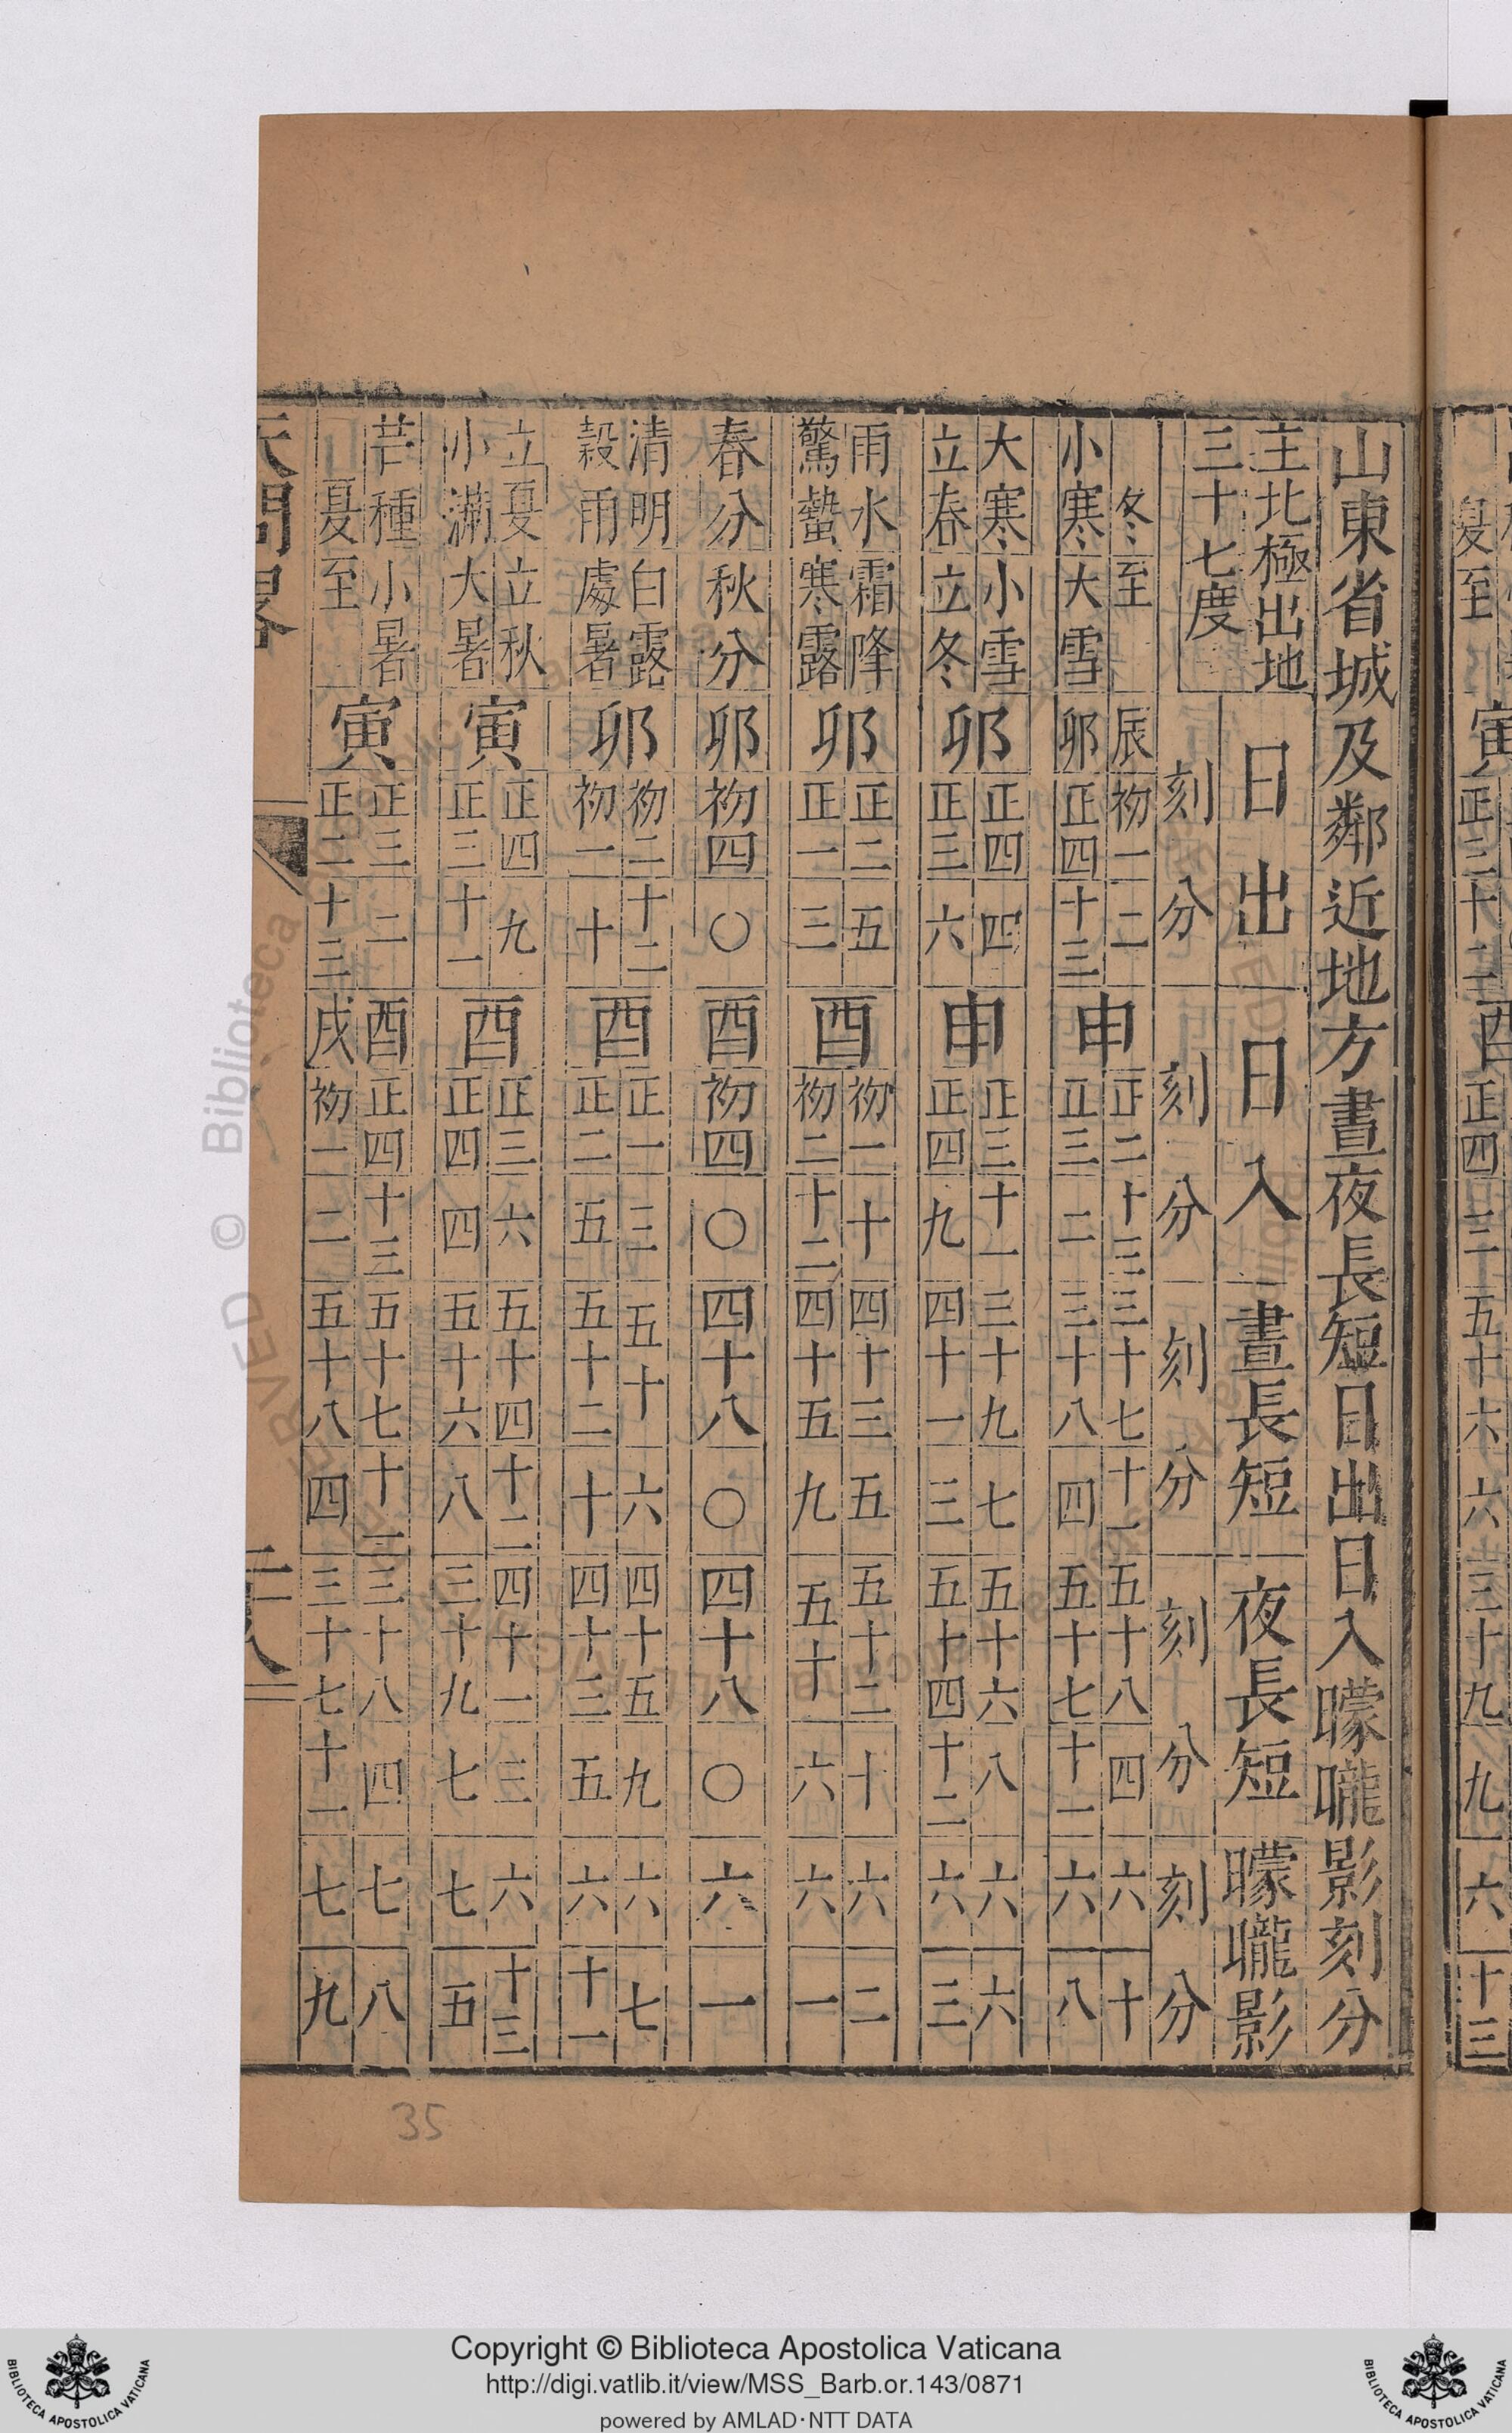 山東省城及鄰近地方晝夜長短日出日入曚曨影刻分
主北極出地
三十七度
日出 日入 晝長短 夜長短 曚曨影
刻 分 刻 分 刻 分 刻 分 刻 分
冬至 辰 初一 二 申 正二 十三 三十七 十一 五十八 四 六 十
小寒 大雪 卯 正四 十三 申 正三 二 三十八 四 五十七 十一 六 八
大寒 小雪 卯 正四 四 申 正三 十一 三十九 七 五十六 八 六 六
立春 立冬 卯 正三 六 申 正四 九 四十一 三 五十四 十二 六 三
雨水 霜降 卯 正二 五 酉 初一 十 四十三 五 五十二 十 六 二
驚蟄 寒露 卯 正一 三 酉 初二 十二 四十五 九 五十 六 六 一
春分 秋分 卯 初四 〇 酉 初四 〇 四十八 〇 四十八 〇 六 一
清明 白露 卯 初二 十二 酉 正一 三 五十 六 四十五 九 六 七
穀雨 處暑 卯 初一 十 酉 正二 五 五十二 十 四十三 五 六 十一
立夏 立秋 寅 正四 九 酉 正三 六 五十四 十二 四十一 三 六 十三
小滿 大暑 寅 正三 十一 酉 正四 四 五十六 八 三十九 七 七 五
芒種 小暑 寅 正三 二 酉 正四 十三 五十七 十一 三十八 四 七 八
夏至 寅 正二 十三 戌 初一 二 五十八 四 三十七 十一 七 九
天問畧
35
Copyright © Biblioteca Apostolica Vaticana
http://digi.vatlib.it/view/MSS_Barb.or.143/0871
powered by AMLAD·NTT DATA